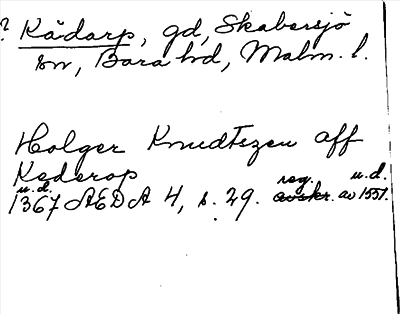 ? Kådarp, gd, Skabersjö
sn, Bara hd, Malm. l.
Holger Knudtszen aff
Kederop
u.d. reg. u.d.
1367 ÆDA 4, s. 29. avskr. av 1551.